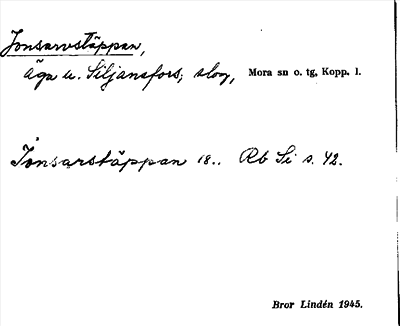 Jonsarvstäppan,
äga u. Siljansfors; slog, Mora sn o. tg, Kopp. l.
Jonsarstäppan 18.. Rb Si s. 42.
Bror Lindén 1945.